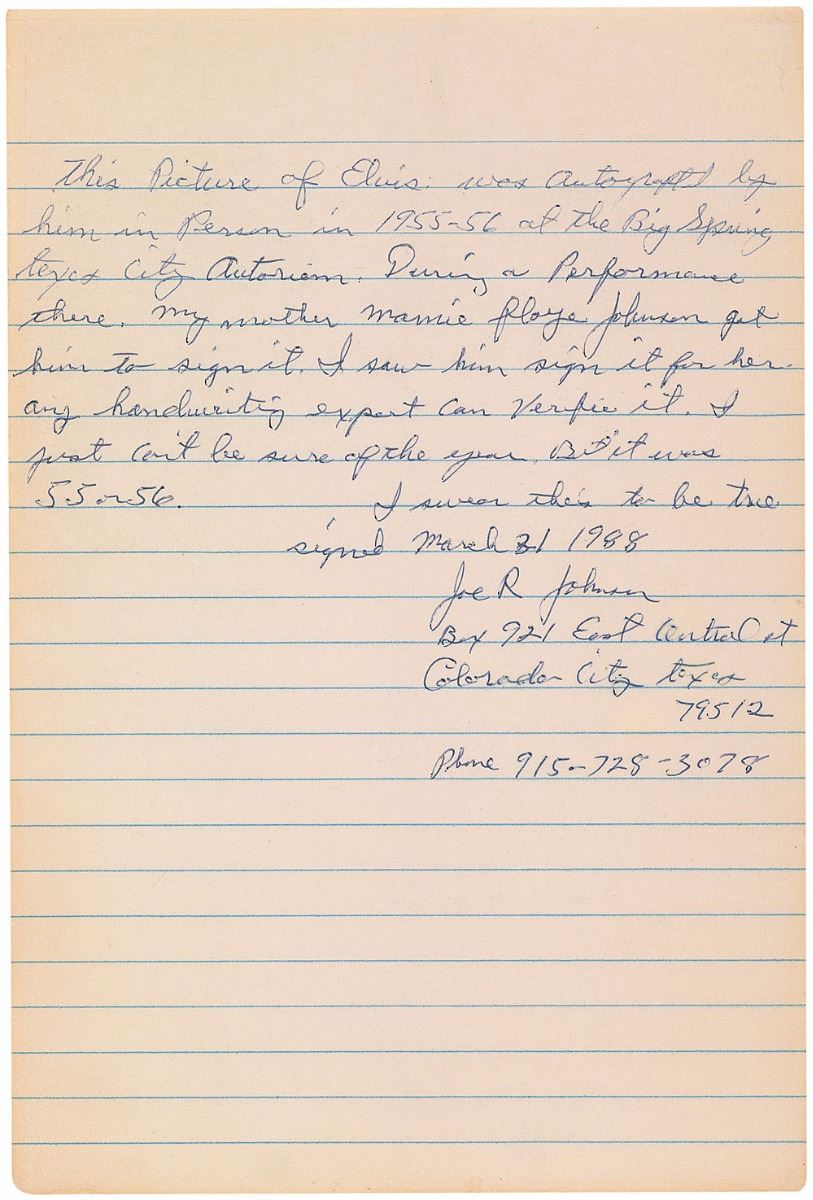 This Picture of Elvis. was Autograph'd by
him in Person in 1955-56 at the Big Spring
texas City Autoriem. During a Performance
there. My mother Mamie Floye Johnson got
him to sign it. I saw him sign it for her.
any handwriting expert can Verifie it. I
just can't be sure of the year. But it was
55 or 56. I swear this to be true
signed March 31 1988
Joe R Johnson
Box 921 East Central st
Colorado City texas
79512
Phone 915-728-3078